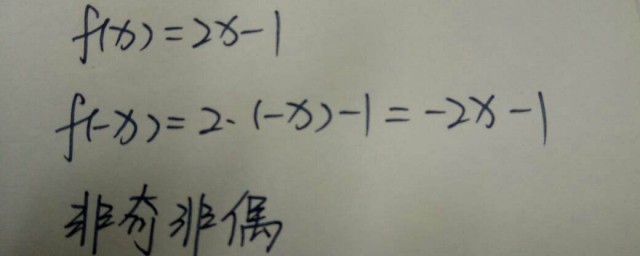 f(x)=2x-1
f(-x)=2·(-x)-1=-2x-1
非奇非偶